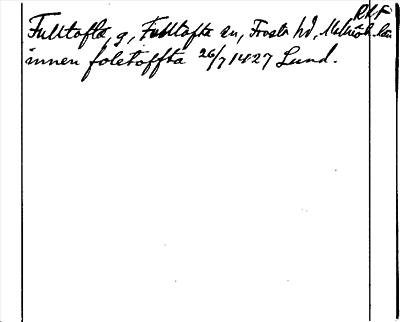 RAP
Fulltofta, g, Fulltofta sn, Frosta hd, Malmöh. län
innen foletoffta 26/7 1427 Lund.